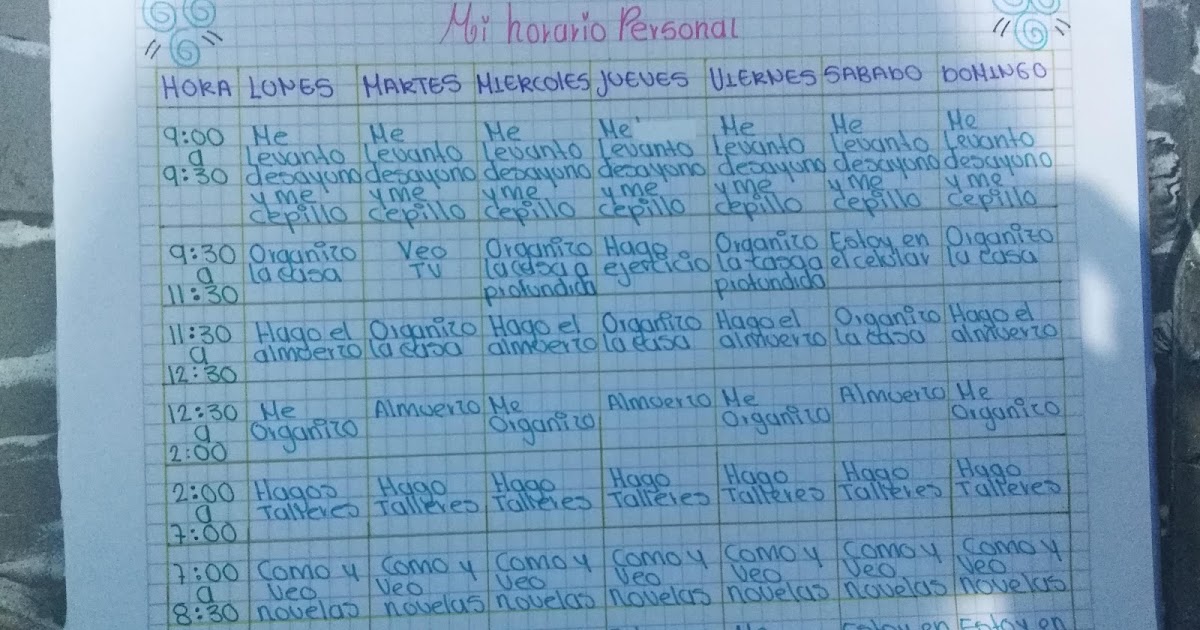 Mi horario Personal
HORA LUNES MARTES MIERCOLES JUEVES VIERNES SABADO DOMINGO
9:00 a 9:30
Me Levanto desayuno y me cepillo
Me Levanto desayuno y me cepillo
Me Levanto desayuno y me cepillo
Me Levanto desayuno y me cepillo
Me Levanto desayuno y me cepillo
Me Levanto desayuno y me cepillo
Me Levanto desayuno y me cepillo
9:30 a 11:30
Organizo la casa
Veo TV
Organizo la casa a profundida
Hago ejercicio
Organizo la casa a profundida
Estoy en el celular
Organizo la casa
11:30 a 12:30
Hago el almuerzo
Organizo la casa
Hago el almuerzo
Organizo la casa
Hago el almuerzo
Organizo la casa
Hago el almuerzo
12:30 a 2:00
Me Organizo
Almuerzo
Me Organizo
Almuerzo
Me Organizo
Almuerzo
Me Organizo
2:00 a 7:00
Hagos Talleres
Hago Talleres
Hago Talleres
Hago Talleres
Hago Talleres
Hago Talleres
Hago Talleres
7:00 a 8:30
Como y Veo novelas
Como y Veo novelas
Como y Veo novelas
Como y Veo novelas
Como y Veo novelas
Como y Veo novelas
Como y Veo novelas
Estoy en Estoy en